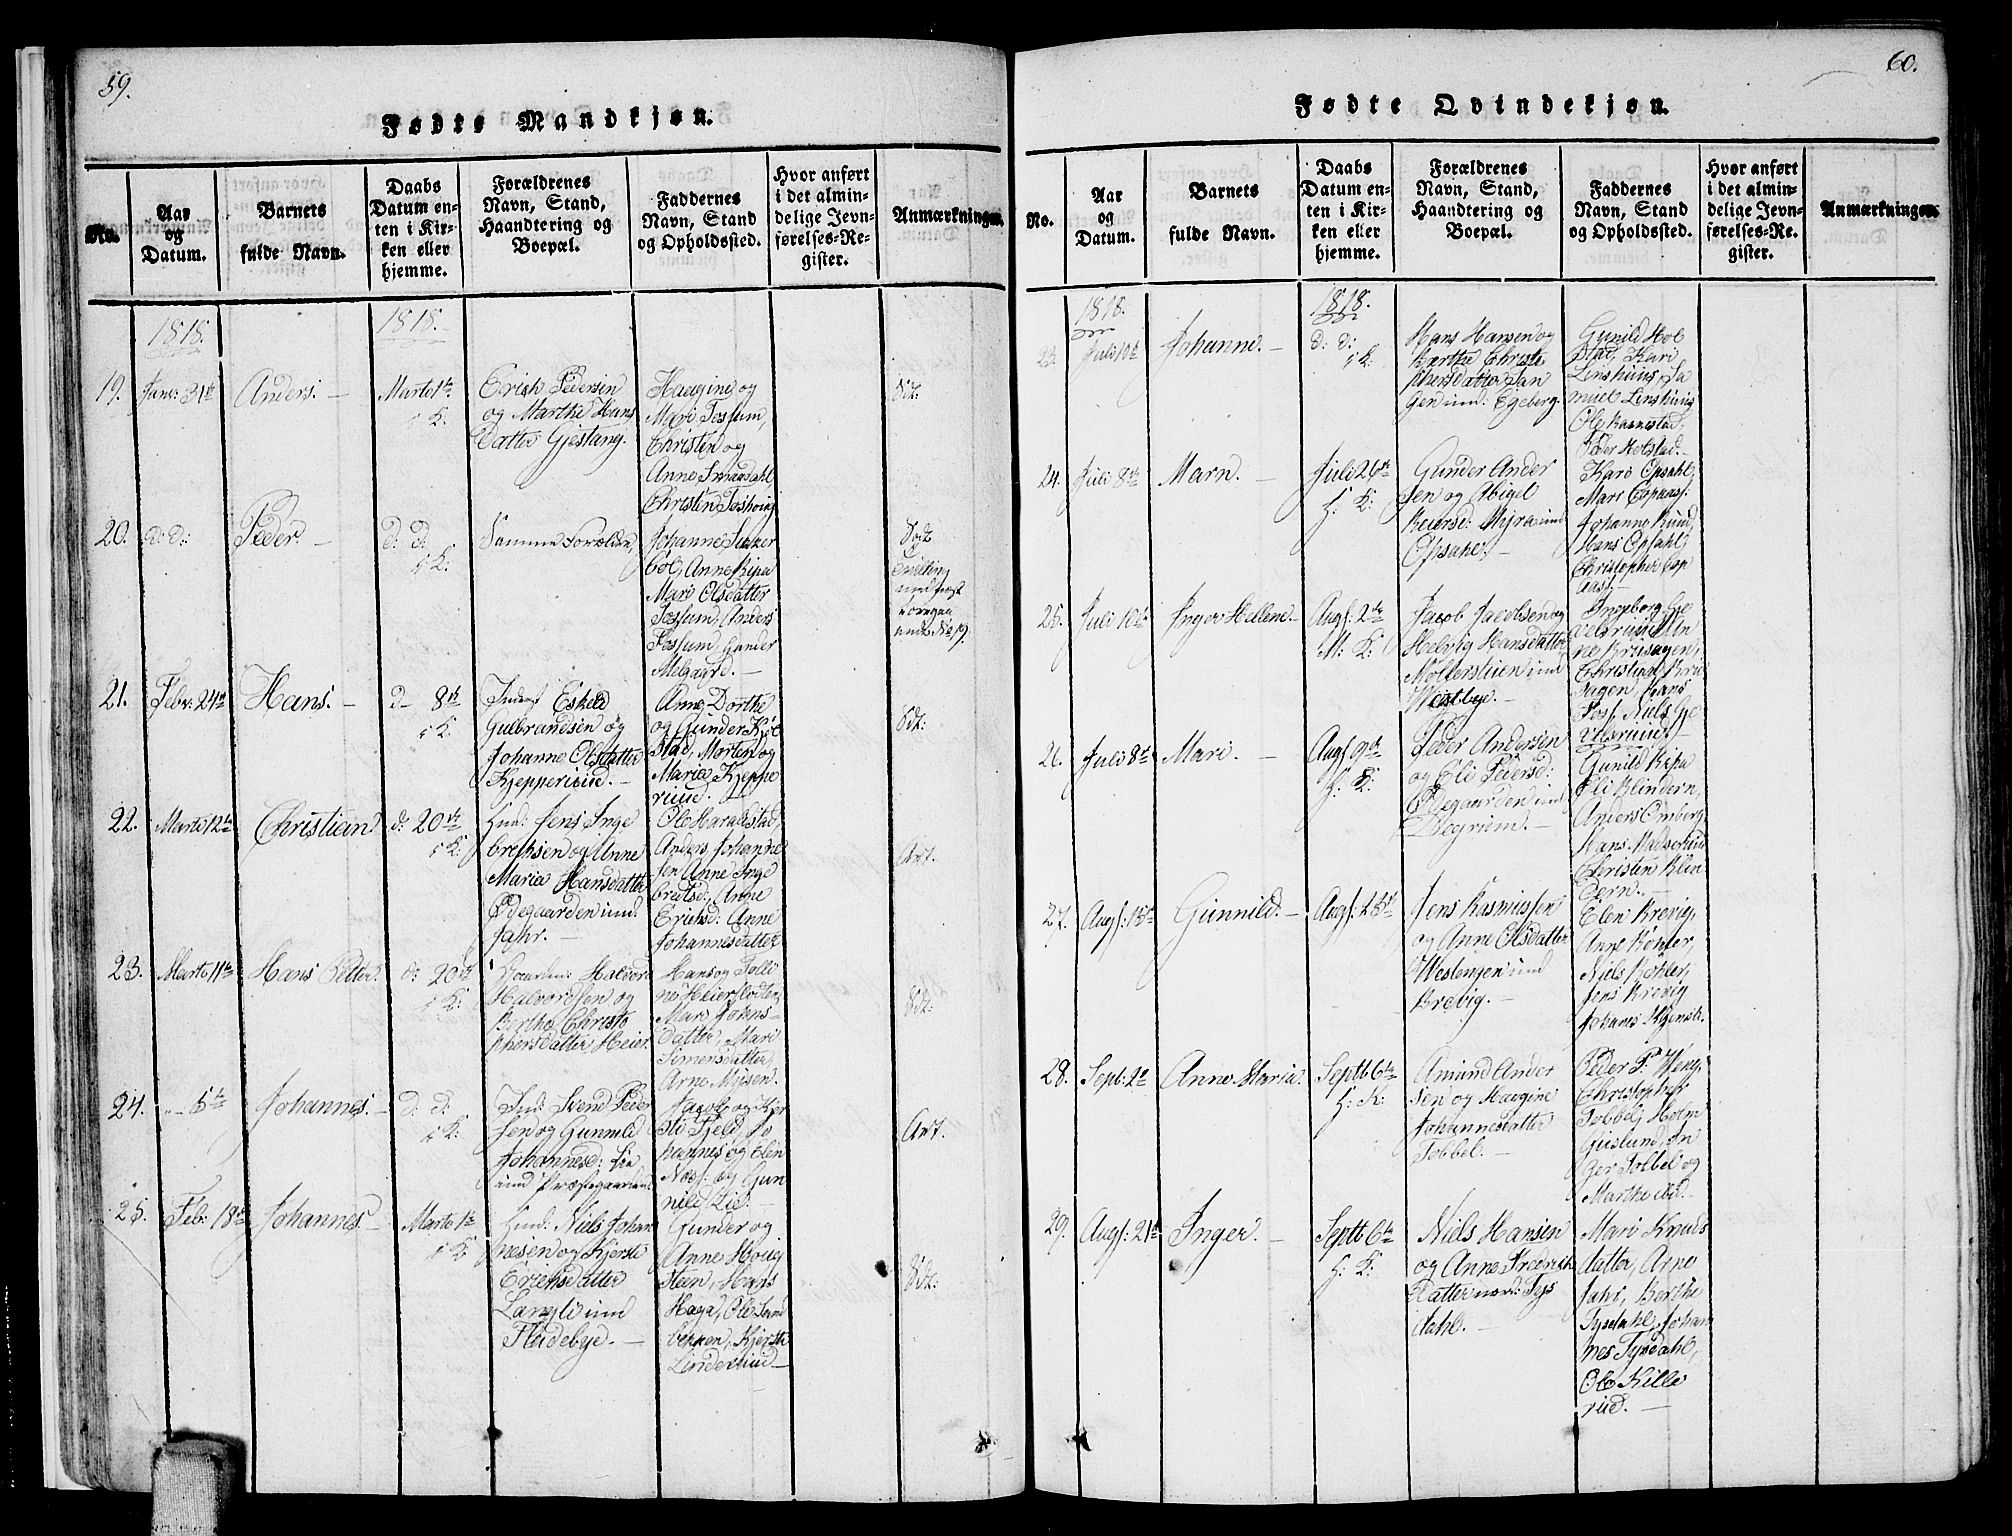 59.
Fødte Mandkjøn.
No.
Aar
og
Datum.
Barnets
fulde Navn.
Daabs
Datum en-
ten i Kir-
ken eller
hjemme.
Forældrenes
Navn, Stand,
Haandtering og
Boepæl.
Faddernes
Navn, Stand
og Opholdssted.
Hvor anført
i det almin-
delige Jevn-
førelses-Re-
gister.
Anmærkninger.
1818.
1818.
19.
Janr: 31te
Anders. –
Marts 1te
K:
Erich Pedersen
og Marthe Hans
datter Gjestang.
og
Mari Fossum,
Christen og
Anne Smaadahl
Christen
20.
d: d:
Peder. –
d: d:
K:
Samme Forældre,
Johanne
Anne Ripa
Mari Olsdatter
Fossum, Anders
Fossum, Gunder
Melgaard. –
Tvilling
No 19.
21.
Febr: 24de
Hans. –
d – 8de
K:
Eskeld
Gulbrandsen og
Johanne Olsdatter
Kjepperud. –
Anne Dorthe
og Gunder
stad, Morten og
Maria Kjeppe
rud. –
22.
Marts 12te
Christian
d: 20de
K:
Jens Inge
brethsen og Anne
Maria Hansdatter
Ødegaarden und:
Jahr. –
Ole Haraldstad,
Anders Johanne
sen Anne Inge
bretsd: Anne
Erichsd: Anne
Johannesdatter
23.
Marts 11te
Hans Petter
d: 20de
K:
Halvord
Halvordsen og
Berthe Christo
phersdatter Heier
Hans og
Mari Johns-
datter, Mari
Simensdatter
Arne Mysen.
24.
– 5te
Johannes. –
d: d:
K:
Ind: Svend Peder
sen og Gunnild
Johannesd: Lie
und Præstegaarden
Jacob og Kjer
sti Fjeld Jo
hannes og Elen
Næs og Gun
nild Lid. –
25.
Feb: 18de
Johannes –
Marts 1te
K:
Niels Johan
nesen og Kjersti
Erichsdatter
Langli und
Fladebye. –
Gunder og
Anne Houg
steen, Hans
Haga, Ole Sand
bekken, Kjersti
Linderud –
60.
Fødte Qvindekjøn.
No.
Aar
og
Datum.
Barnets
fulde Navn.
Daabs
Datum en-
ten i Kir-
ken eller
hjemme.
Forældrenes
Navn, Stand,
Haandtering og
Boepæl.
Faddernes
Navn, Stand
og Opholdssted.
Hvor anført
i det almin-
delige Jevn-
førelses-Re-
gister.
Anmærkninger.
1818.
1818.
23.
Juli 10de
Johanne. –
d: d:
K:
Hans Hansen og
Berthe Christo
phersdatter San
gen und: Egeberg.
Gunild Hol
stad, Kari
Linshuus, Sa
muel Linshuus
Ole
Peder Holstad. –
24.
Juli 8de
Marn. –
Juli 26de
H: K:
Gunder Ander
sen og Abigel
Myra und
Opsahl. –
Kari Opsahl,
Mari
Johanne Rud,
Hans Opsahl,
Christopher
25.
Juli 10de
Inger Hellene. –
Augs: 2de
M: K:
Jacob Jacobsen og
Helvig Hansdatter
Möllerstuen und
Westbye. –
Ingeborg Ge
velsrud, An
ne Krusagen,
Christian Kru
sagen, Hans
Foss, Niels Ge
velsrud. –
26.
Juli 8de
Mari. –
Augs: 9de
H: K:
Peder Andersen
og Eli Pedersd:
Ødegaarden und
Degrum. –
Gunild Ripa
Eli Klindern,
Anders Omberg
Hans
Christen Klin
dern. –
27.
Augs: 15de
Gunnild. –
Augs: 23de
Jens Rasmussen
og Anne Olsdatter
Westengen und
Krevig. –
Elen Krevig,
Anne Köhler
Niels Köhler,
Jens Krevig
Johannes
28.
Sept: 2de
Anne Maria.
Septb 6te
H: K:
Amund Ander
sen og Haagine
Johannesdatter
Tobbel. –
Peder P:
Christopher
Tobbel, Holm
Guslund, In
ger Tobbel og
Marthe ibid. –
29.
Augs: 21de
Inger. –
Septb 6te
H: K:
Niels Hansen
og Anne Fredrich
datter nord: Tys
dahl. –
Mari Knuds
datter, Arne
Jahr, Berthe
Tysdahl, Johan
nes Tysdahl,
Ole Kille
rud. –